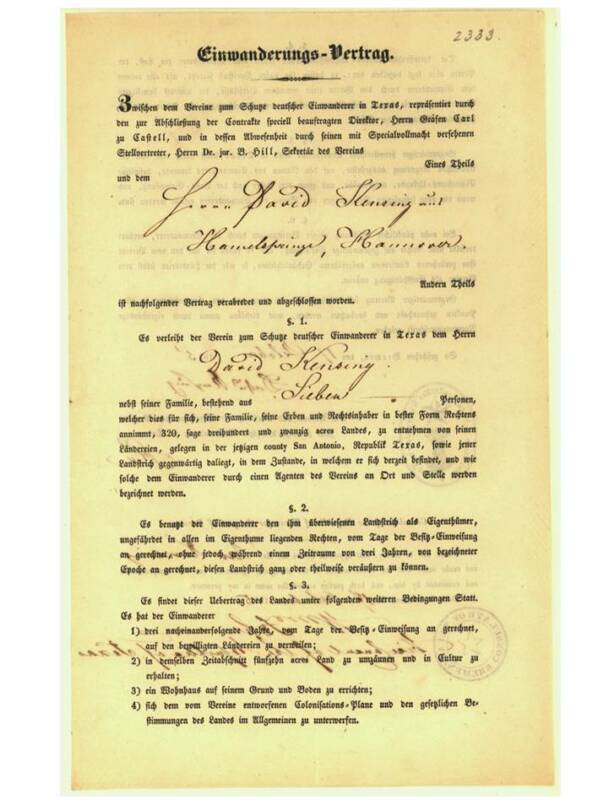 2333.
Einwanderungs-Vertrag.
Zwischen dem Vereine zum Schutze deutscher Einwanderer in Texas, repräsentirt durch
den zur Abschließung der Contrakte speciell beauftragten Direktor, Herrn Grafen Carl
zu Castell, und in dessen Abwesenheit durch seinen mit Specialvollmacht versehenen
Stellvertreter, Herrn Dr. jur. B. Hill, Sekretär des Vereins
Eines Theils
und dem
Herrn David Kensing aus
Hamelspringe, Hannover.
Andern Theils
ist nachfolgender Vertrag verabredet und abgeschlossen worden.
§. 1.
Es verleiht der Verein zum Schutze deutscher Einwanderer in Texas dem Herrn
David Kensing
nebst seiner Familie, bestehend aus Sieben Personen,
welcher dies für sich, seine Familie, seine Erben und Rechtsinhaber in bester Form Rechtens
annimmt, 320, sage dreihundert und zwanzig acres Landes, zu entnehmen von seinen
Ländereien, gelegen in der jetzigen county San Antonio, Republik Texas, sowie jener
Landstrich gegenwärtig daliegt, in dem Zustande, in welchem er sich derzeit befindet, und wie
solche dem Einwanderer durch einen Agenten des Vereins an Ort und Stelle werden
bezeichnet werden.
§. 2.
Es benutzt der Einwanderer den ihm überwiesenen Landstrich als Eigenthümer,
ungefährdet in allen im Eigenthume liegenden Rechten, vom Tage der Besitz-Einweisung
an gerechnet, ohne jedoch während einem Zeitraume von drei Jahren, von bezeichneter
Epoche an gerechnet, diesen Landstrich ganz oder theilweise veräußern zu können.
§. 3.
Es findet dieser Uebertrag des Landes unter folgenden weiteren Bedingungen Statt.
Es hat der Einwanderer
1) drei nacheinanderfolgende Jahre, vom Tage der Besitz-Einweisung an gerechnet,
auf den bewilligten Ländereien zu verweilen;
2) in demselben Zeitabschnitt fünfzehn acres Land zu umzäunen und in Cultur zu
erhalten;
3) ein Wohnhaus auf seinem Grund und Boden zu errichten;
4) sich dem vom Vereine entworfenen Colonisations-Plane und den gesetzlichen Be-
stimmungen des Landes im Allgemeinen zu unterwerfen.